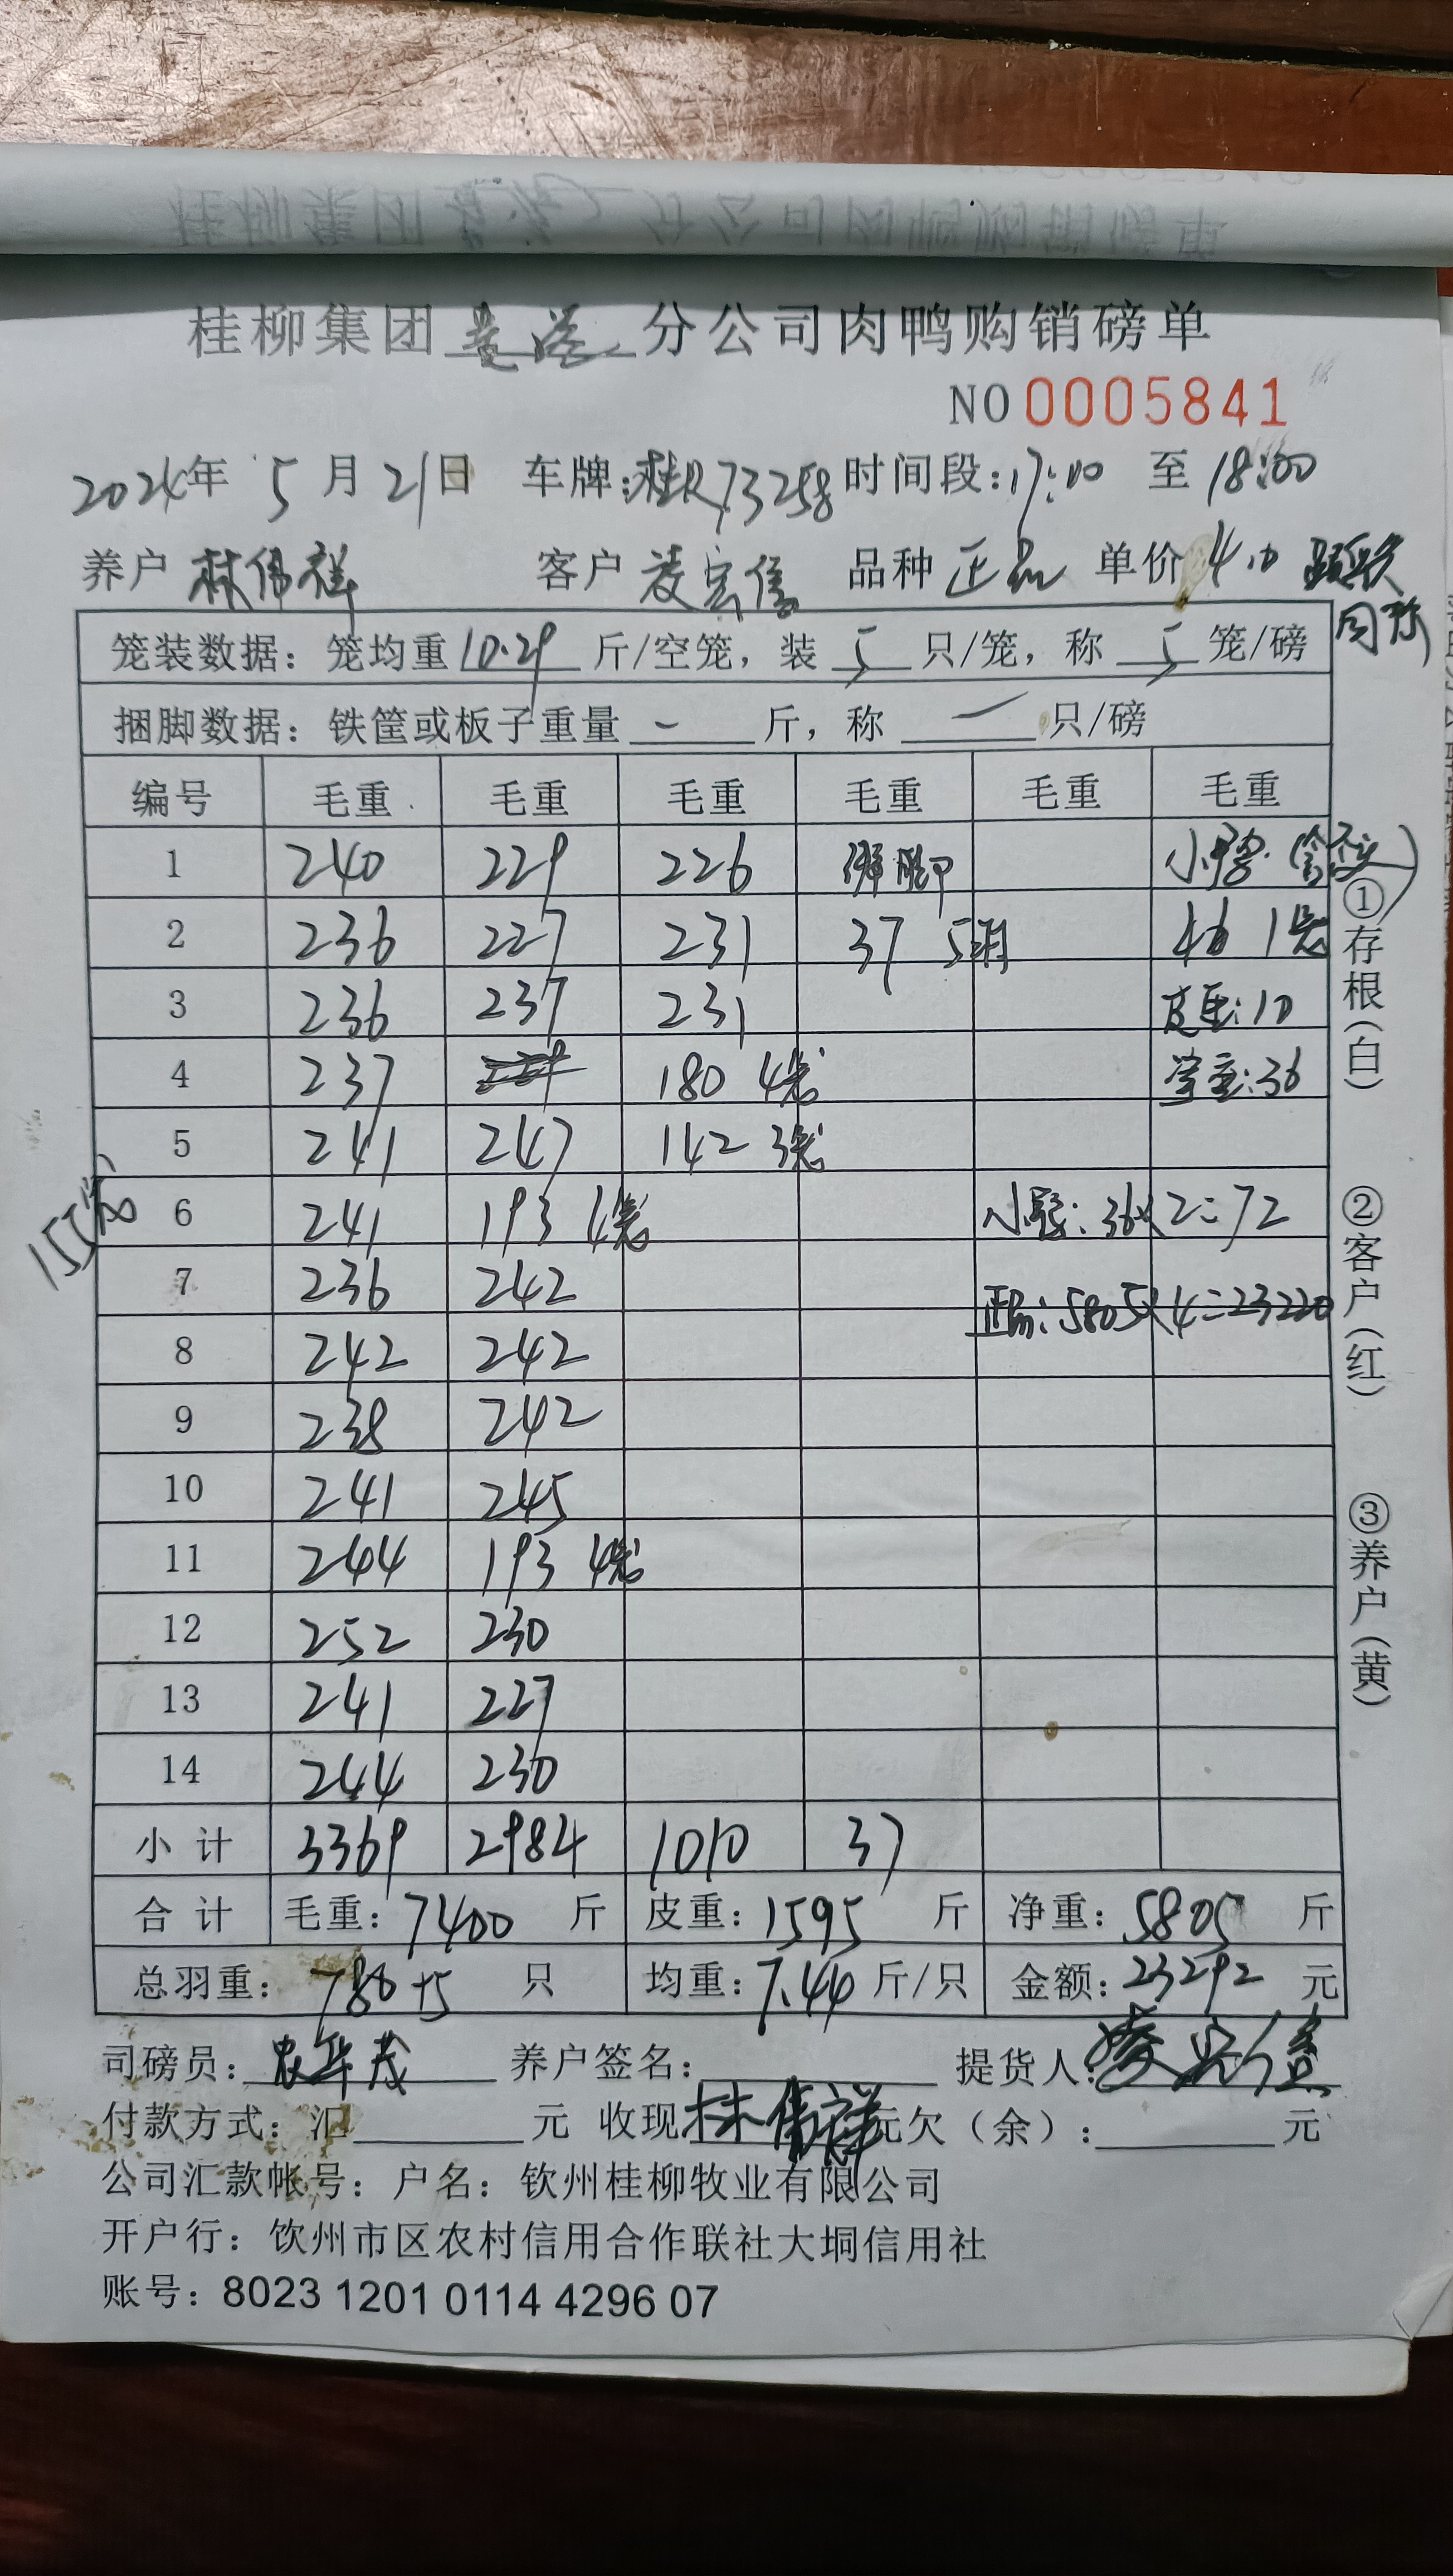 桂柳集团贵港分公司肉鸭购销磅单
NO 0005841
2024年 5 月 21日 车牌:桂R73258 时间段:17:00 至 18:00
养户 林伟祥 客户 凌宏信 品种 正品 单价 4.0
同称
笼装数据: 笼均重 10.29 斤/空笼, 装 5 只/笼, 称 5 笼/磅
捆脚数据: 铁筐或板子重量 - 斤, 称 一 只/磅
编号 毛重 毛重 毛重 毛重 毛重 毛重
1 240 229 226 绑脚
2 236 227 231 37 5只 46 1笼
3 236 237 231 皮重:10
4 237 180 4笼 净重:36
5 241 247 142 3笼
155笼
6 241 193 4笼 36×2=72
7 236 242 正品:5805×4=23220
8 242 242
9 238 242
10 241 245
11 244 193 4笼
12 252 230
13 241 227
14 244 230
小计 3369 2984 1010 37
合计 毛重: 7400 斤 皮重: 1595 斤 净重: 5805 斤
总羽重: 780+5 只 均重: 7.44 斤/只 金额: 23292 元
司磅员: 农华茂 养户签名: 林伟祥 提货人: 凌宏信
付款方式: 汇 元 收现 元欠(余): 元
公司汇款帐号: 户名: 钦州桂柳牧业有限公司
开户行: 饮州市区农村信用合作联社大垌信用社
账号: 8023 1201 0114 4296 07
①存根(白)
②客户(红)
③养户(黄)